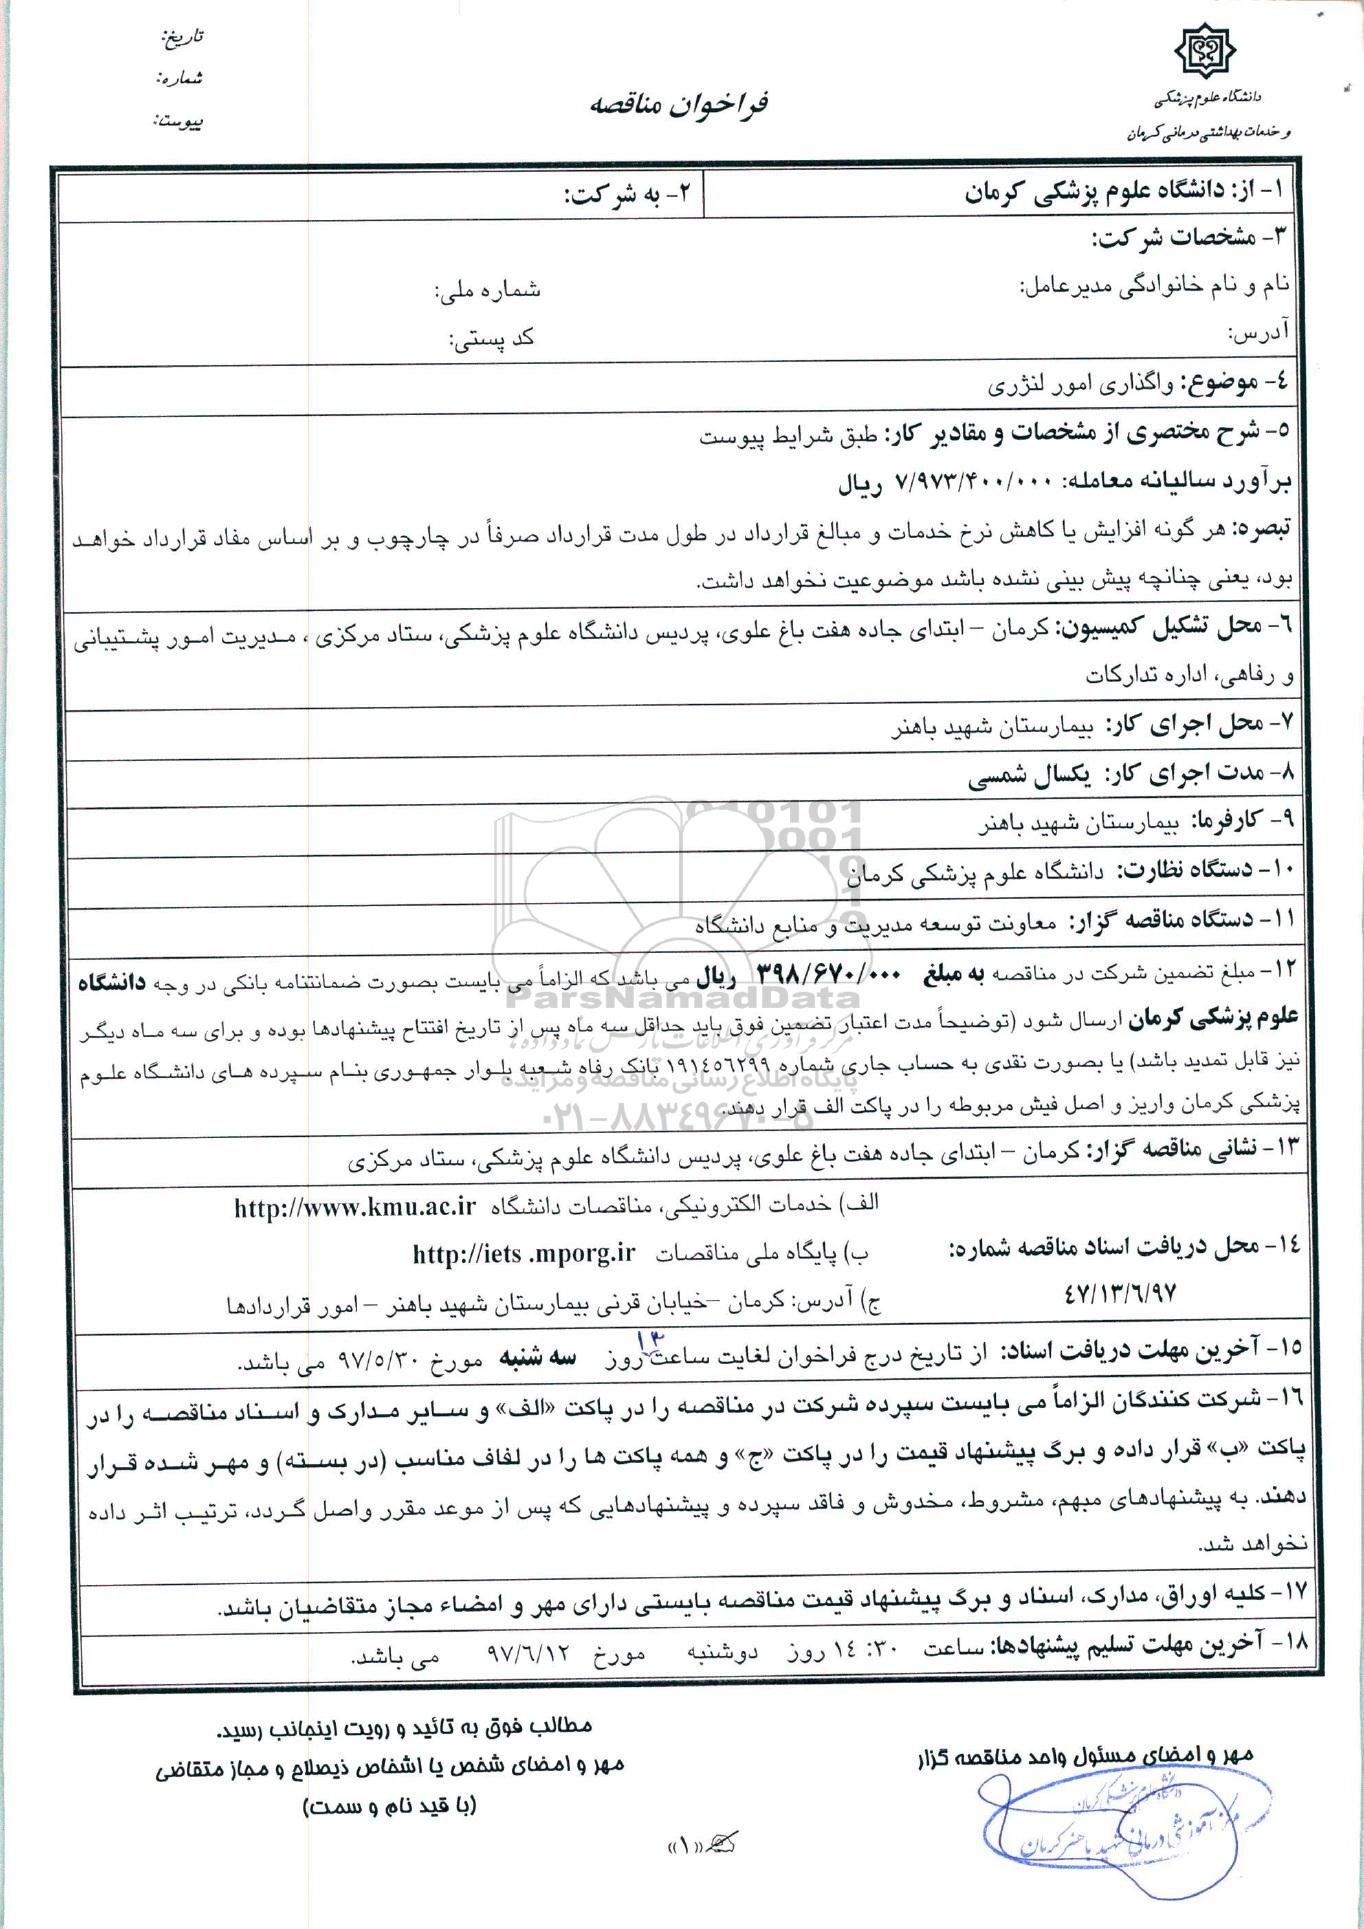 دانشگاه علوم پزشکی
و خدمات بهداشتی درمانی کرمان
فراخوان مناقصه
تاریخ:
شماره:
پیوست:
۱- از: دانشگاه علوم پزشکی کرمان
۲- به شرکت:
۳- مشخصات شرکت:
نام و نام خانوادگی مدیرعامل:
شماره ملی:
آدرس:
کد پستی:
۴- موضوع: واگذاری امور لنژری
۵- شرح مختصری از مشخصات و مقادیر کار: طبق شرایط پیوست
برآورد سالیانه معامله: ۷/۹۷۳/۴۰۰/۰۰۰ ریال
تبصره: هر گونه افزایش یا کاهش نرخ خدمات و مبالغ قرارداد در طول مدت قرارداد صرفاً در چارچوب و بر اساس مفاد قرارداد خواهد
بود، یعنی چنانچه پیش بینی نشده باشد موضوعیت نخواهد داشت.
۶- محل تشکیل کمیسیون: کرمان – ابتدای جاده هفت باغ علوی، پردیس دانشگاه علوم پزشکی، ستاد مرکزی ، مدیریت امور پشتیبانی
و رفاهی، اداره تدارکات
۷- محل اجرای کار: بیمارستان شهید باهنر
۸- مدت اجرای کار: یکسال شمسی
۹- کارفرما: بیمارستان شهید باهنر
۱۰- دستگاه نظارت: دانشگاه علوم پزشکی کرمان
۱۱- دستگاه مناقصه گزار: معاونت توسعه مدیریت و منابع دانشگاه
۱۲- مبلغ تضمین شرکت در مناقصه به مبلغ ۳۹۸/۶۷۰/۰۰۰ ریال می باشد که الزاماً می بایست بصورت ضمانتنامه بانکی در وجه دانشگاه
علوم پزشکی کرمان ارسال شود (توضیحاً مدت اعتبار تضمین فوق باید حداقل سه ماه پس از تاریخ افتتاح پیشنهادها بوده و برای سه ماه دیگر
نیز قابل تمدید باشد) یا بصورت نقدی به حساب جاری شماره ۱۹۱۴۵۶۲۹۹ بانک رفاه شعبه بلوار جمهوری بنام سپرده های دانشگاه علوم
پزشکی کرمان واریز و اصل فیش مربوطه را در پاکت الف قرار دهند.
۱۳- نشانی مناقصه گزار: کرمان – ابتدای جاده هفت باغ علوی، پردیس دانشگاه علوم پزشکی، ستاد مرکزی
۱۴- محل دریافت اسناد مناقصه شماره:
۴۷/۱۳/۶/۹۷
الف) خدمات الکترونیکی، مناقصات دانشگاه http://www.kmu.ac.ir
ب) پایگاه ملی مناقصات http://iets .mporg.ir
ج) آدرس: کرمان –خیابان قرنی بیمارستان شهید باهنر – امور قراردادها
۱۵- آخرین مهلت دریافت اسناد: از تاریخ درج فراخوان لغایت ساعت ۱۳ روز سه شنبه مورخ ۹۷/۵/۳۰ می باشد.
۱۶- شرکت کنندگان الزاماً می بایست سپرده شرکت در مناقصه را در پاکت «الف» و سایر مدارک و اسناد مناقصه را در
پاکت «ب» قرار داده و برگ پیشنهاد قیمت را در پاکت «ج» و همه پاکت ها را در لفاف مناسب (در بسته) و مهر شده قرار
دهند. به پیشنهادهای مبهم، مشروط، مخدوش و فاقد سپرده و پیشنهادهایی که پس از موعد مقرر واصل گردد، ترتیب اثر داده
نخواهد شد.
۱۷- کلیه اوراق، مدارک، اسناد و برگ پیشنهاد قیمت مناقصه بایستی دارای مهر و امضاء مجاز متقاضیان باشد.
۱۸- آخرین مهلت تسلیم پیشنهادها: ساعت ۱۴:۳۰ روز دوشنبه مورخ ۹۷/۶/۱۲ می باشد.
مهر و امضای مسئول واحد مناقصه گزار
دانشگاه علوم پزشکی کرمان
مرکز آموزشی درمانی شهید باهنر کرمان
مطالب فوق به تائید و رویت اینجانب رسید.
مهر و امضای شخص یا اشخاص ذیصلاح و مجاز متقاضی
(با قید نام و سمت)
«۱»
ParsNamadData
مرکز فرآوری اطلاعات پارس نماد داده ها
پایگاه اطلاع رسانی مناقصه و مزایده
۰۲۱-۸۸۳۴۹۶۷۰-۵